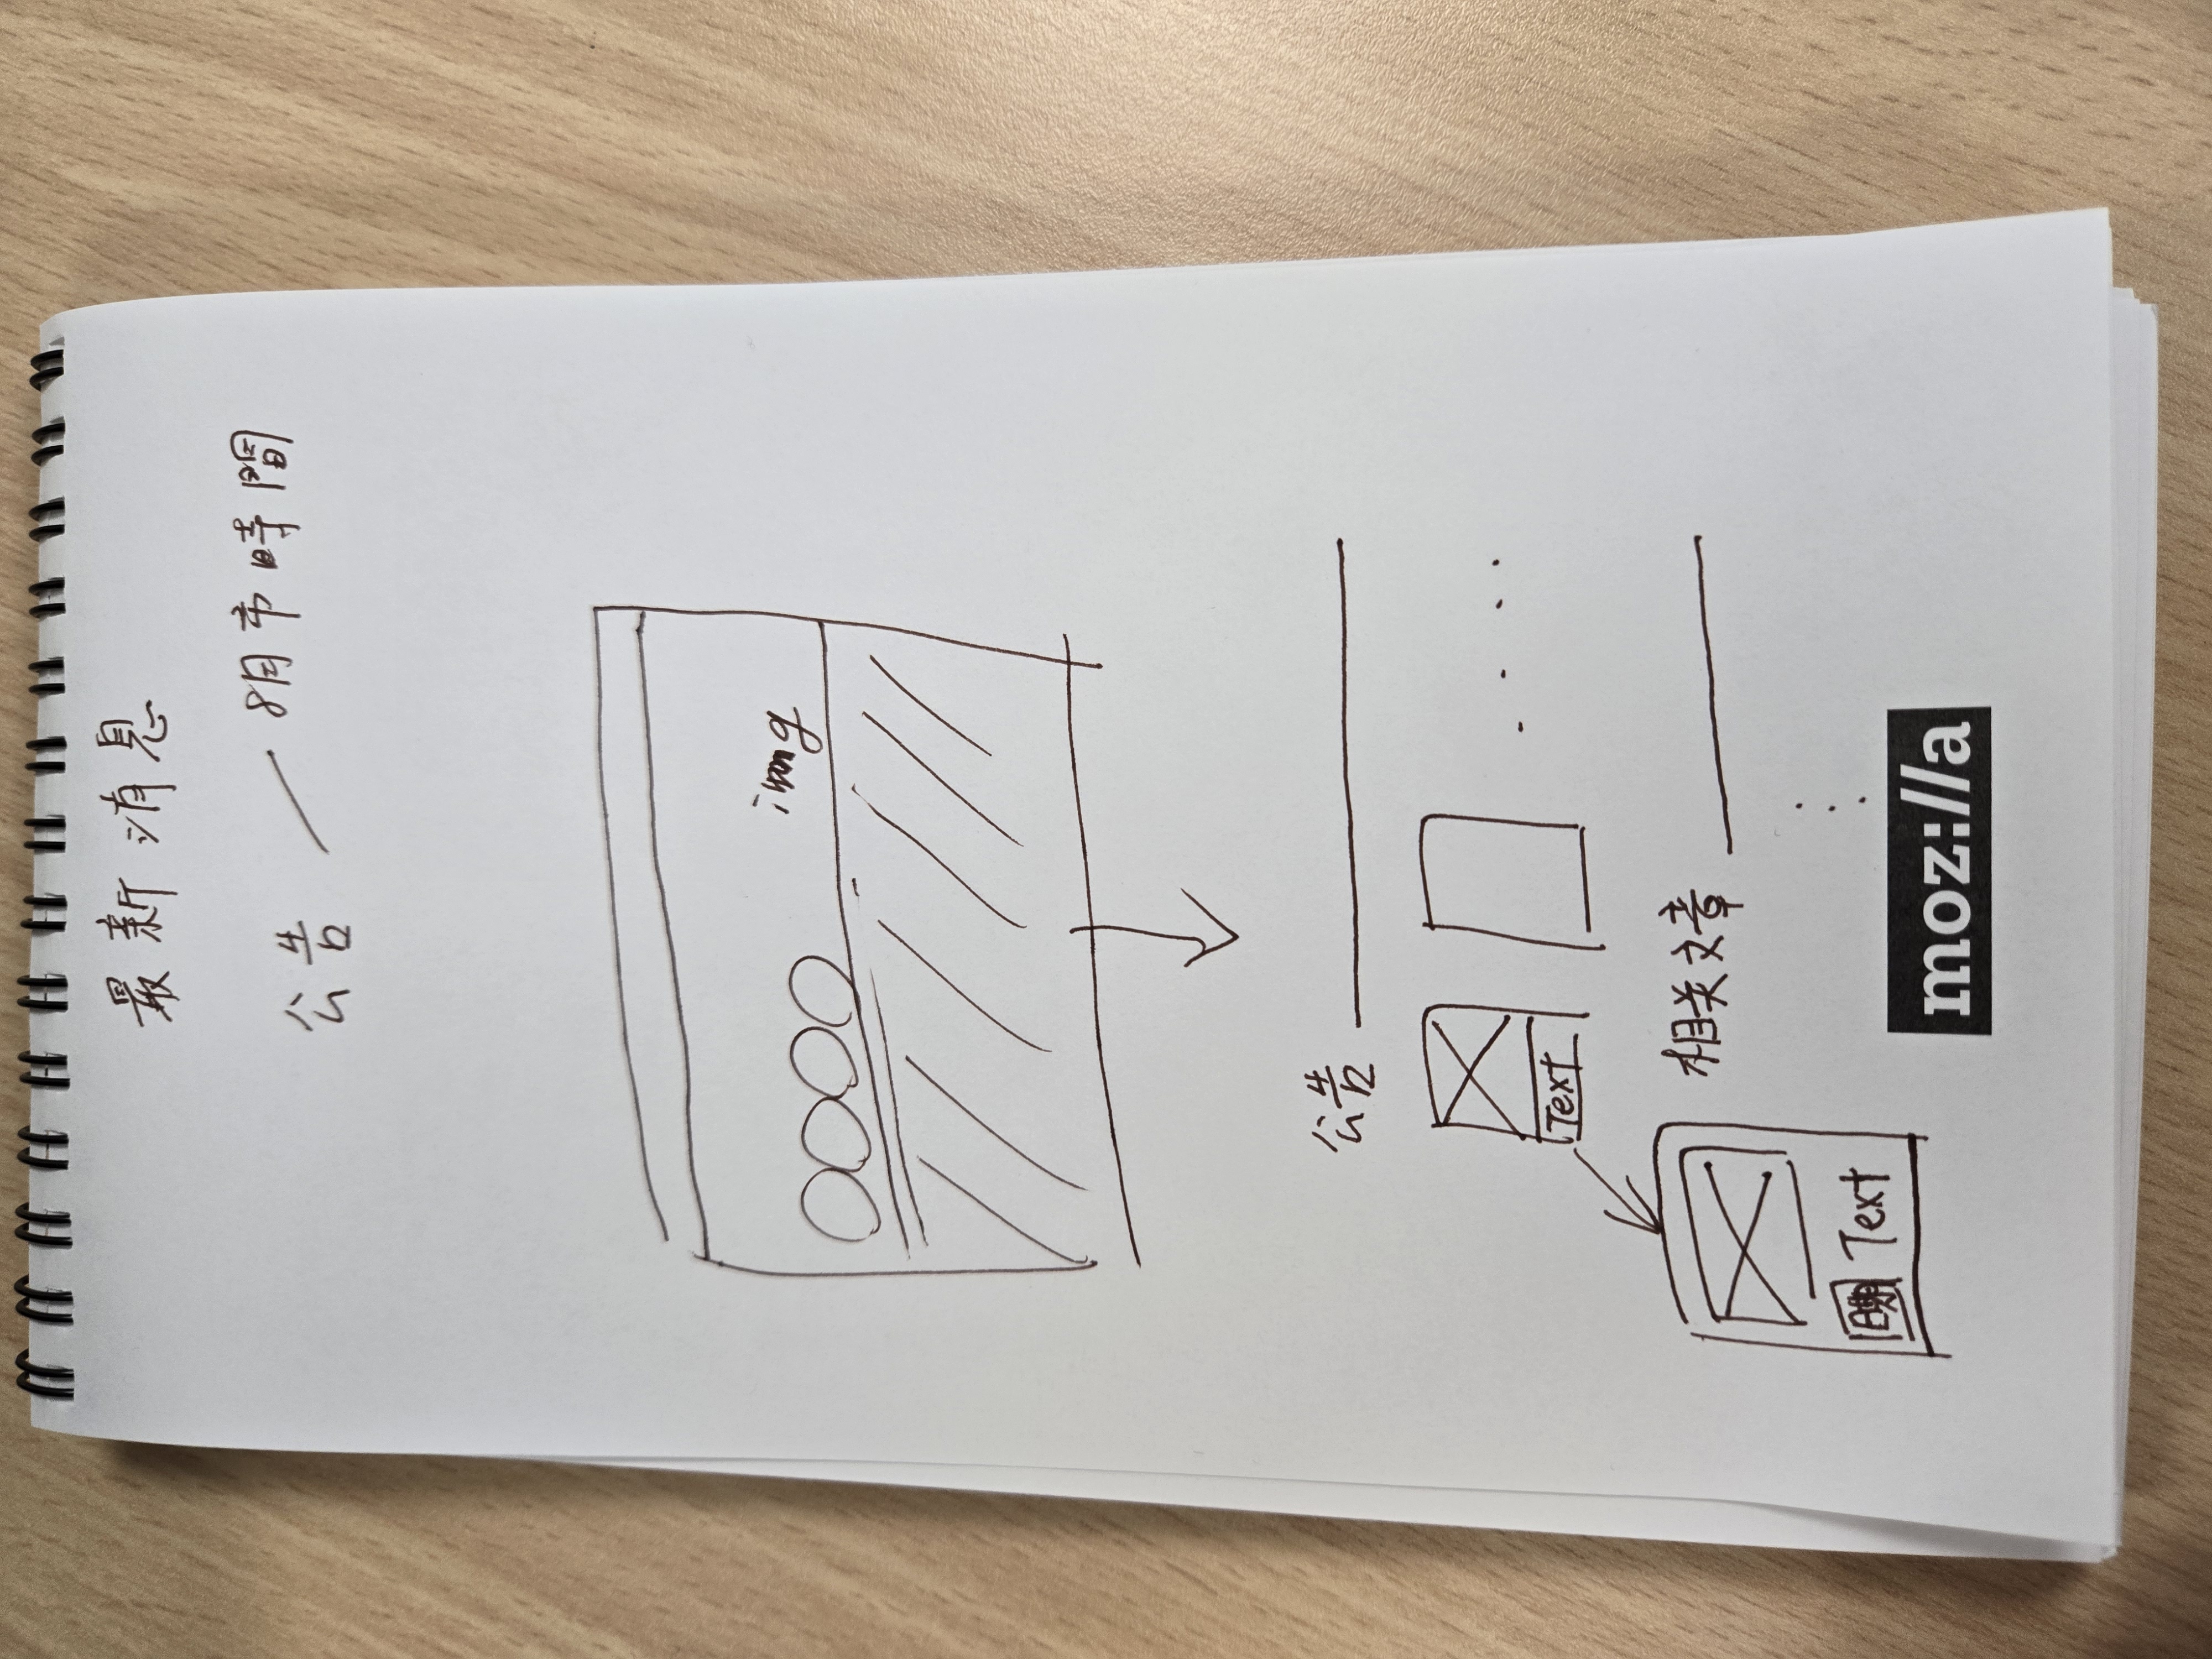 最新消息
公告
8月市時間
img
公告
Text
相关文章
日期 Text
moz://a